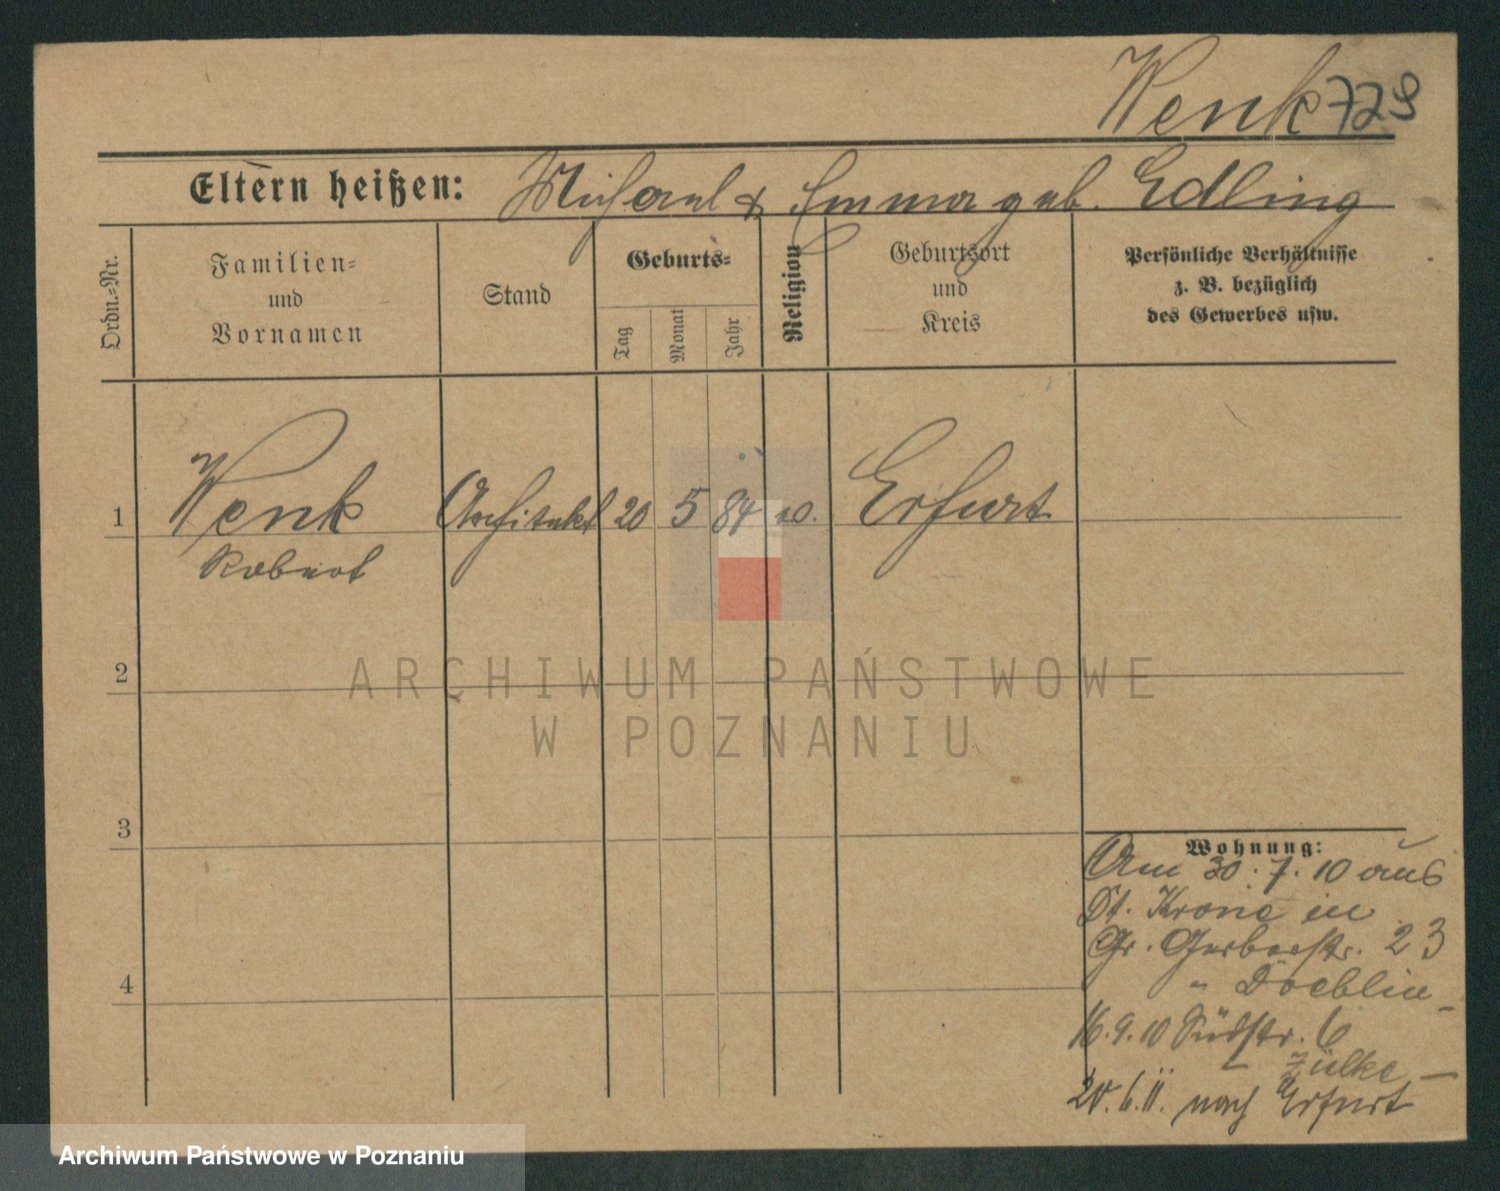 Wenk 729
Eltern heißen: Michael & Emma geb. Edling
Ordn.=Nr.
Familien=
und
Vornamen
Stand
Geburts=
Tag
Monat
Jahr
Religion
Geburtsort
und
Kreis
Persönliche Verhältnisse
z. B. bezüglich
des Gewerbes usw.
1 Wenk Architekt 20 5 84 Erfurt
Robert
2
3
4
Wohnung:
Am 30.7.10 aus
Dt. Krone in
Gr. Gerberstr. 23
" Doeblin
16.9.10 Südstr. 6
Zülke
6.11. nach Erfurt
ARCHIWUM PAŃSTWOWE
W POZNANIU
Archiwum Państwowe w Poznaniu